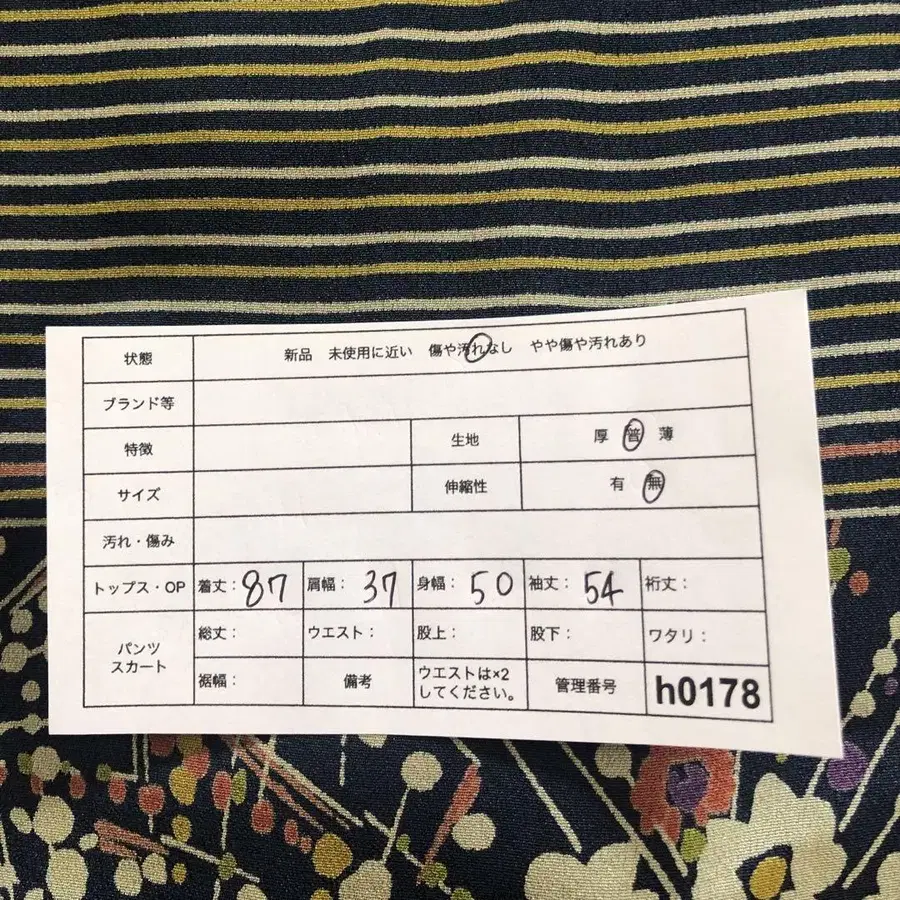 状態 新品 未使用に近い 傷や汚れなし やや傷や汚れあり
ブランド等
特徴 生地 厚 普 薄
サイズ 伸縮性 有 無
汚れ・傷み
トップス・OP 着丈:87 肩幅:37 身幅:50 袖丈:54 裄丈:
パンツ スカート 総丈: ウエスト: 股上: 股下: ワタリ:
裾幅: 備考 ウエストは×2
してください。 管理番号 h0178